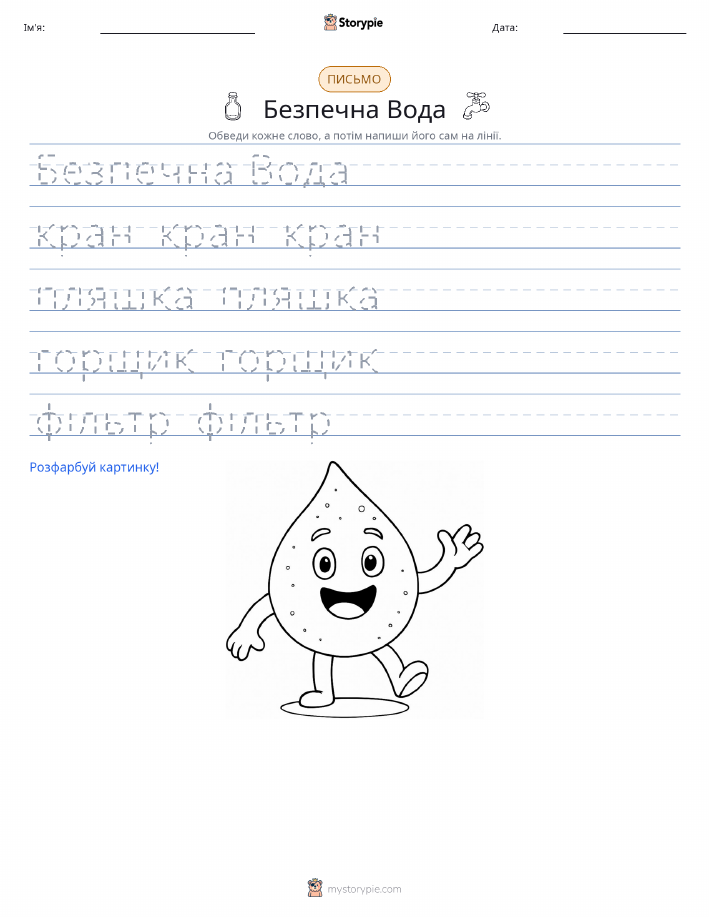 Ім'я:
Storypie
Дата:
ПИСЬМО
Безпечна Вода
Обведи кожне слово, а потім напиши його сам на лінії.
Безпечна Вода
кран кран кран
пляшка пляшка
горщик горщик
фільтр фільтр
Розфарбуй картинку!
mystorypie.com